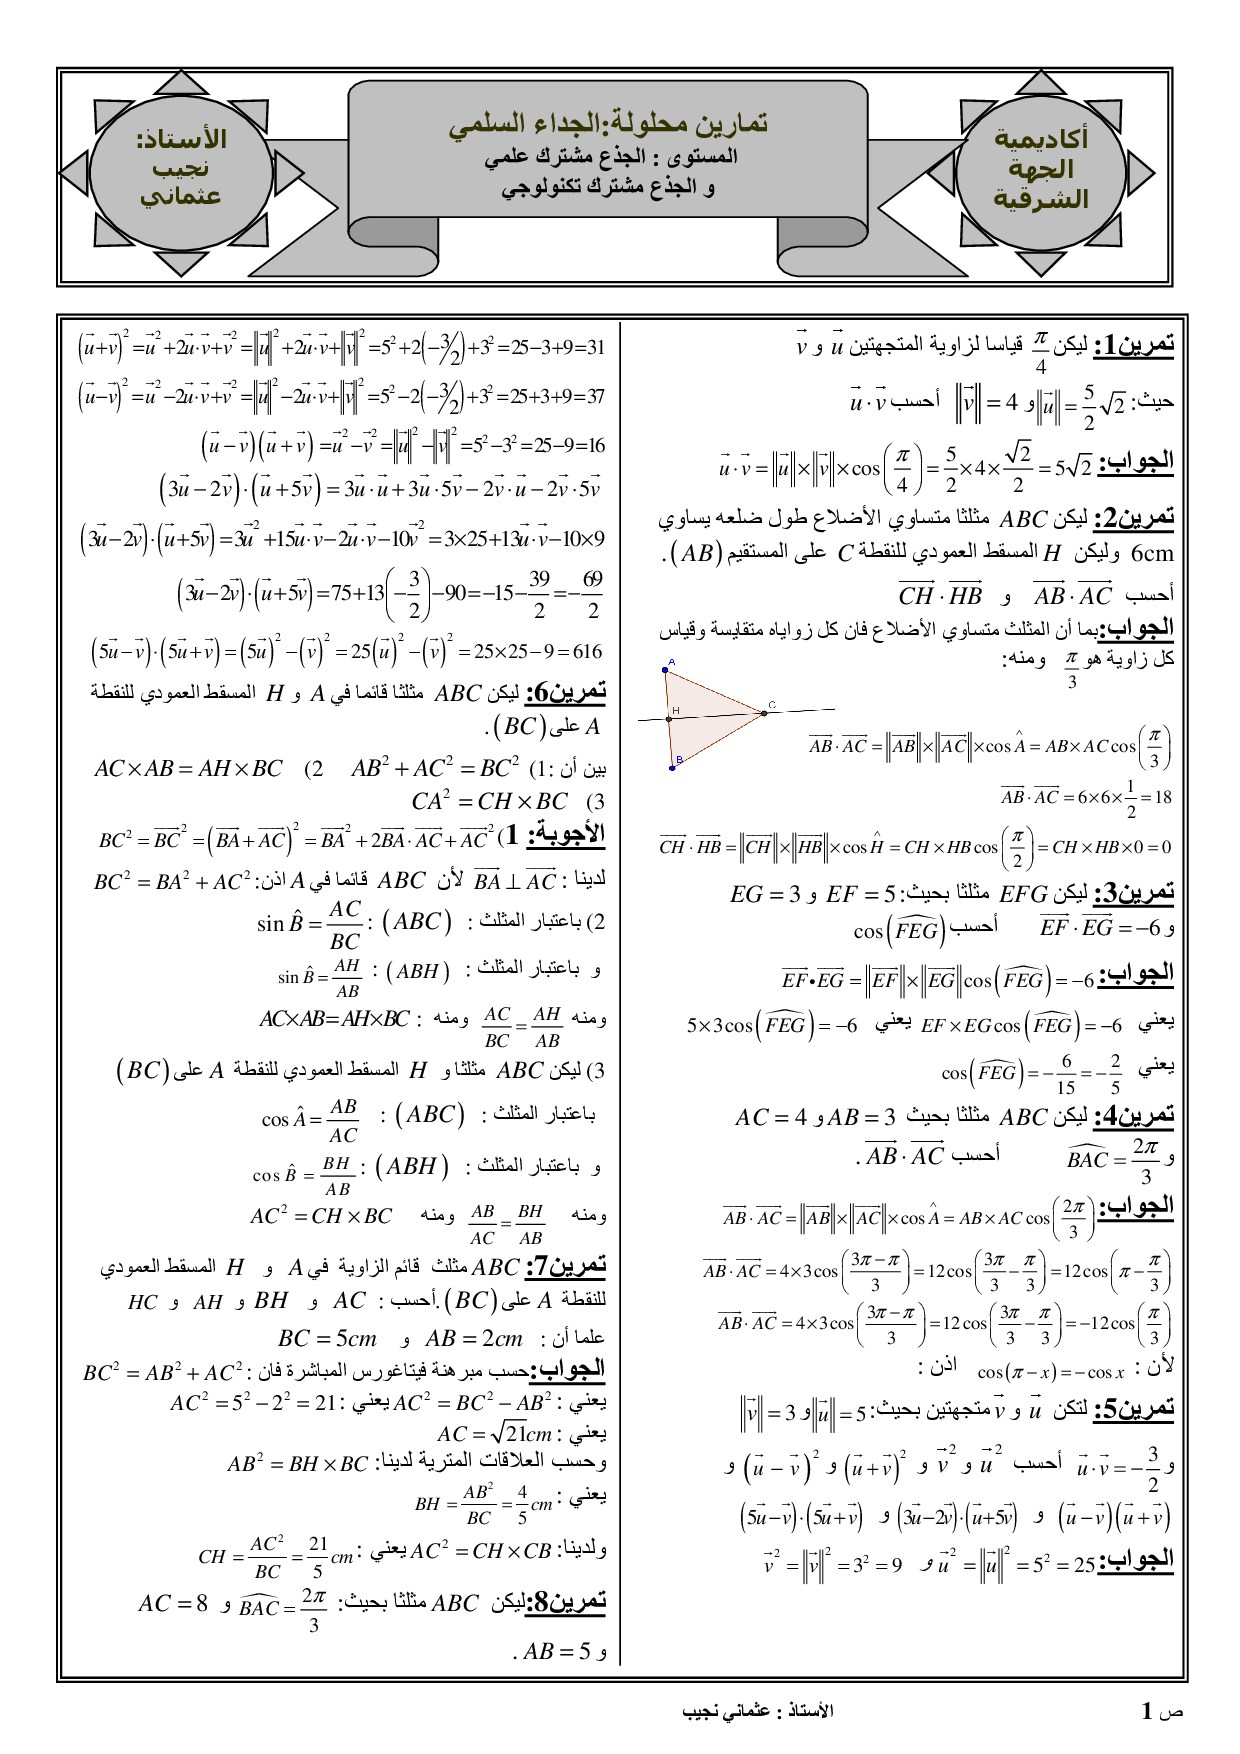 أكاديمية
الجهة
الشرقية
تمارين محلولة:الجداء السلمي
المستوى : الجذع مشترك علمي
و الجذع مشترك تكنولوجي
الأستاذ:
نجيب
عثماني
تمرين1: ليكن π/4 قياسا لزاوية المتجهتين u⃗ و v⃗
حيث: ‖u⃗‖ = 5/2 √2 و ‖v⃗‖ = 4 أحسب u⃗·v⃗
الجواب: u⃗·v⃗ = ‖u⃗‖×‖v⃗‖×cos(π/4) = 5/2×4×√2/2 = 5√2
تمرين2: ليكن ABC مثلثا متساوي الأضلاع طول ضلعه يساوي
6cm وليكن H المسقط العمودي للنقطة C على المستقيم (AB).
أحسب AB⃗·AC⃗ و CH⃗·HB⃗
الجواب:بما أن المثلث متساوي الأضلاع فان كل زواياه متقايسة وقياس
كل زاوية هو π/3 ومنه:
A
H
C
B
AB⃗·AC⃗ = ‖AB⃗‖×‖AC⃗‖×cos Â = AB×AC cos(π/3)
AB⃗·AC⃗ = 6×6×1/2 = 18
CH⃗·HB⃗ = ‖CH⃗‖×‖HB⃗‖×cos Ĥ = CH×HB cos(π/2) = CH×HB×0 = 0
تمرين3: ليكن EFG مثلثا بحيث: EF = 5 و EG = 3
و EF⃗·EG⃗ = −6 أحسب cos(FEG)
الجواب: EF⃗•EG⃗ = ‖EF⃗‖×‖EG⃗‖cos(FEG) = −6
يعني EF×EG cos(FEG) = −6 يعني 5×3cos(FEG) = −6
يعني cos(FEG) = −6/15 = −2/5
تمرين4: ليكن ABC مثلثا بحيث AB = 3 و AC = 4
و BAC = 2π/3 أحسب AB⃗·AC⃗ .
الجواب: AB⃗·AC⃗ = ‖AB⃗‖×‖AC⃗‖×cos Â = AB×AC cos(2π/3)
AB⃗·AC⃗ = 4×3cos((3π−π)/3) = 12cos(3π/3 − π/3) = 12cos(π − π/3)
AB⃗·AC⃗ = 4×3cos((3π−π)/3) = 12cos(3π/3 − π/3) = −12cos(π/3)
لأن : cos(π−x) = −cos x اذن :
تمرين5: لتكن u⃗ و v⃗ متجهتين بحيث: ‖u⃗‖ = 5 و ‖v⃗‖ = 3
و u⃗·v⃗ = −3/2 أحسب u⃗² و v⃗² و (u⃗+v⃗)² و (u⃗−v⃗)² و
(u⃗−v⃗)(u⃗+v⃗) و (3u⃗−2v⃗)·(u⃗+5v⃗) و (5u⃗−v⃗)·(5u⃗+v⃗)
الجواب: u⃗² = ‖u⃗‖² = 5² = 25 و v⃗² = ‖v⃗‖² = 3² = 9
(u⃗+v⃗)² = u⃗²+2u⃗·v⃗+v⃗² = ‖u⃗‖²+2u⃗·v⃗+‖v⃗‖² = 5²+2(−3/2)+3² = 25−3+9 = 31
(u⃗−v⃗)² = u⃗²−2u⃗·v⃗+v⃗² = ‖u⃗‖²−2u⃗·v⃗+‖v⃗‖² = 5²−2(−3/2)+3² = 25+3+9 = 37
(u⃗−v⃗)(u⃗+v⃗) = u⃗²−v⃗² = ‖u⃗‖²−‖v⃗‖² = 5²−3² = 25−9 = 16
(3u⃗−2v⃗)·(u⃗+5v⃗) = 3u⃗·u⃗+3u⃗·5v⃗−2v⃗·u⃗−2v⃗·5v⃗
(3u⃗−2v⃗)·(u⃗+5v⃗) = 3u⃗²+15u⃗·v⃗−2u⃗·v⃗−10v⃗² = 3×25+13u⃗·v⃗−10×9
(3u⃗−2v⃗)·(u⃗+5v⃗) = 75+13(−3/2)−90 = −15−39/2 = −69/2
(5u⃗−v⃗)·(5u⃗+v⃗) = (5u⃗)²−(v⃗)² = 25(u⃗)²−(v⃗)² = 25×25−9 = 616
تمرين6: ليكن ABC مثلثا قائما في A و H المسقط العمودي للنقطة
A على (BC) .
بين أن :1) AB² + AC² = BC² 2) AC×AB = AH×BC
3) CA² = CH×BC
الأجوبة: 1) BC² = BC⃗² = (BA⃗+AC⃗)² = BA⃗²+2BA⃗·AC⃗+AC⃗²
لدينا : BA⃗ ⊥ AC⃗ لأن ABC قائما في A اذن: BC² = BA² + AC²
2) باعتبار المثلث : (ABC) : sin B̂ = AC/BC
و باعتبار المثلث : (ABH) : sin B̂ = AH/AB
ومنه AC/BC = AH/AB ومنه : AC×AB=AH×BC
3) ليكن ABC مثلثا و H المسقط العمودي للنقطة A على (BC)
باعتبار المثلث : (ABC) : cos Â = AB/AC
و باعتبار المثلث : (ABH) : cos B̂ = BH/AB
ومنه AB/AC = BH/AB ومنه AC² = CH×BC
تمرين7: ABC مثلث قائم الزاوية في A و H المسقط العمودي
للنقطة A على (BC).أحسب : AC و BH و AH و HC
علما أن : AB = 2cm و BC = 5cm
الجواب:حسب مبرهنة فيتاغورس المباشرة فان : BC² = AB² + AC²
يعني : AC² = BC² − AB² يعني : AC² = 5² − 2² = 21
يعني : AC = √21cm
وحسب العلاقات المترية لدينا: AB² = BH×BC
يعني : BH = AB²/BC = 4/5 cm
ولدينا: AC² = CH×CB يعني : CH = AC²/BC = 21/5 cm
تمرين8:ليكن ABC مثلثا بحيث: BAC = 2π/3 و AC = 8
و AB = 5 .
ص 1
الأستاذ : عثماني نجيب